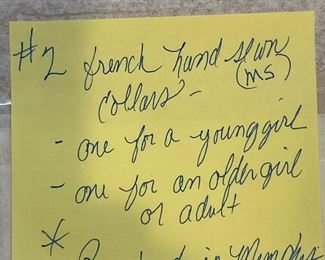 #2 french hand sewn
(MS)
collars -
- one for a young girl
- one for an older girl
or adult
*
in Memphis